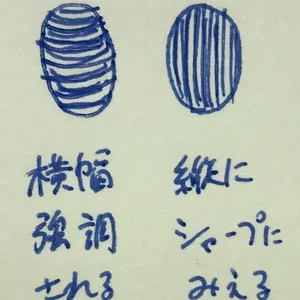 横幅
強調
される
縦に
シャープに
みえる